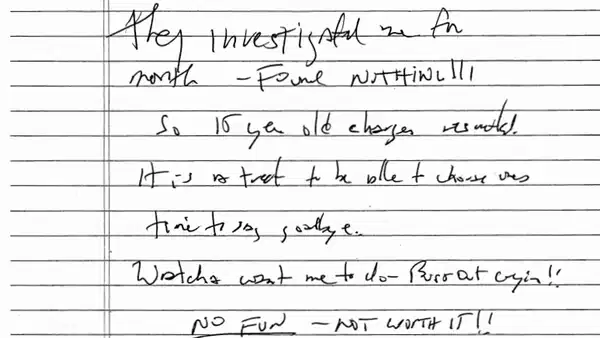 They investigated me for
month - Found NOTHING!!!
So year old charges resulted.
It is a treat to be able to choose ones
time to say goodbye.
Watcha want me to do - Burst out cryin!!
NO FUN - NOT WORTH IT!!